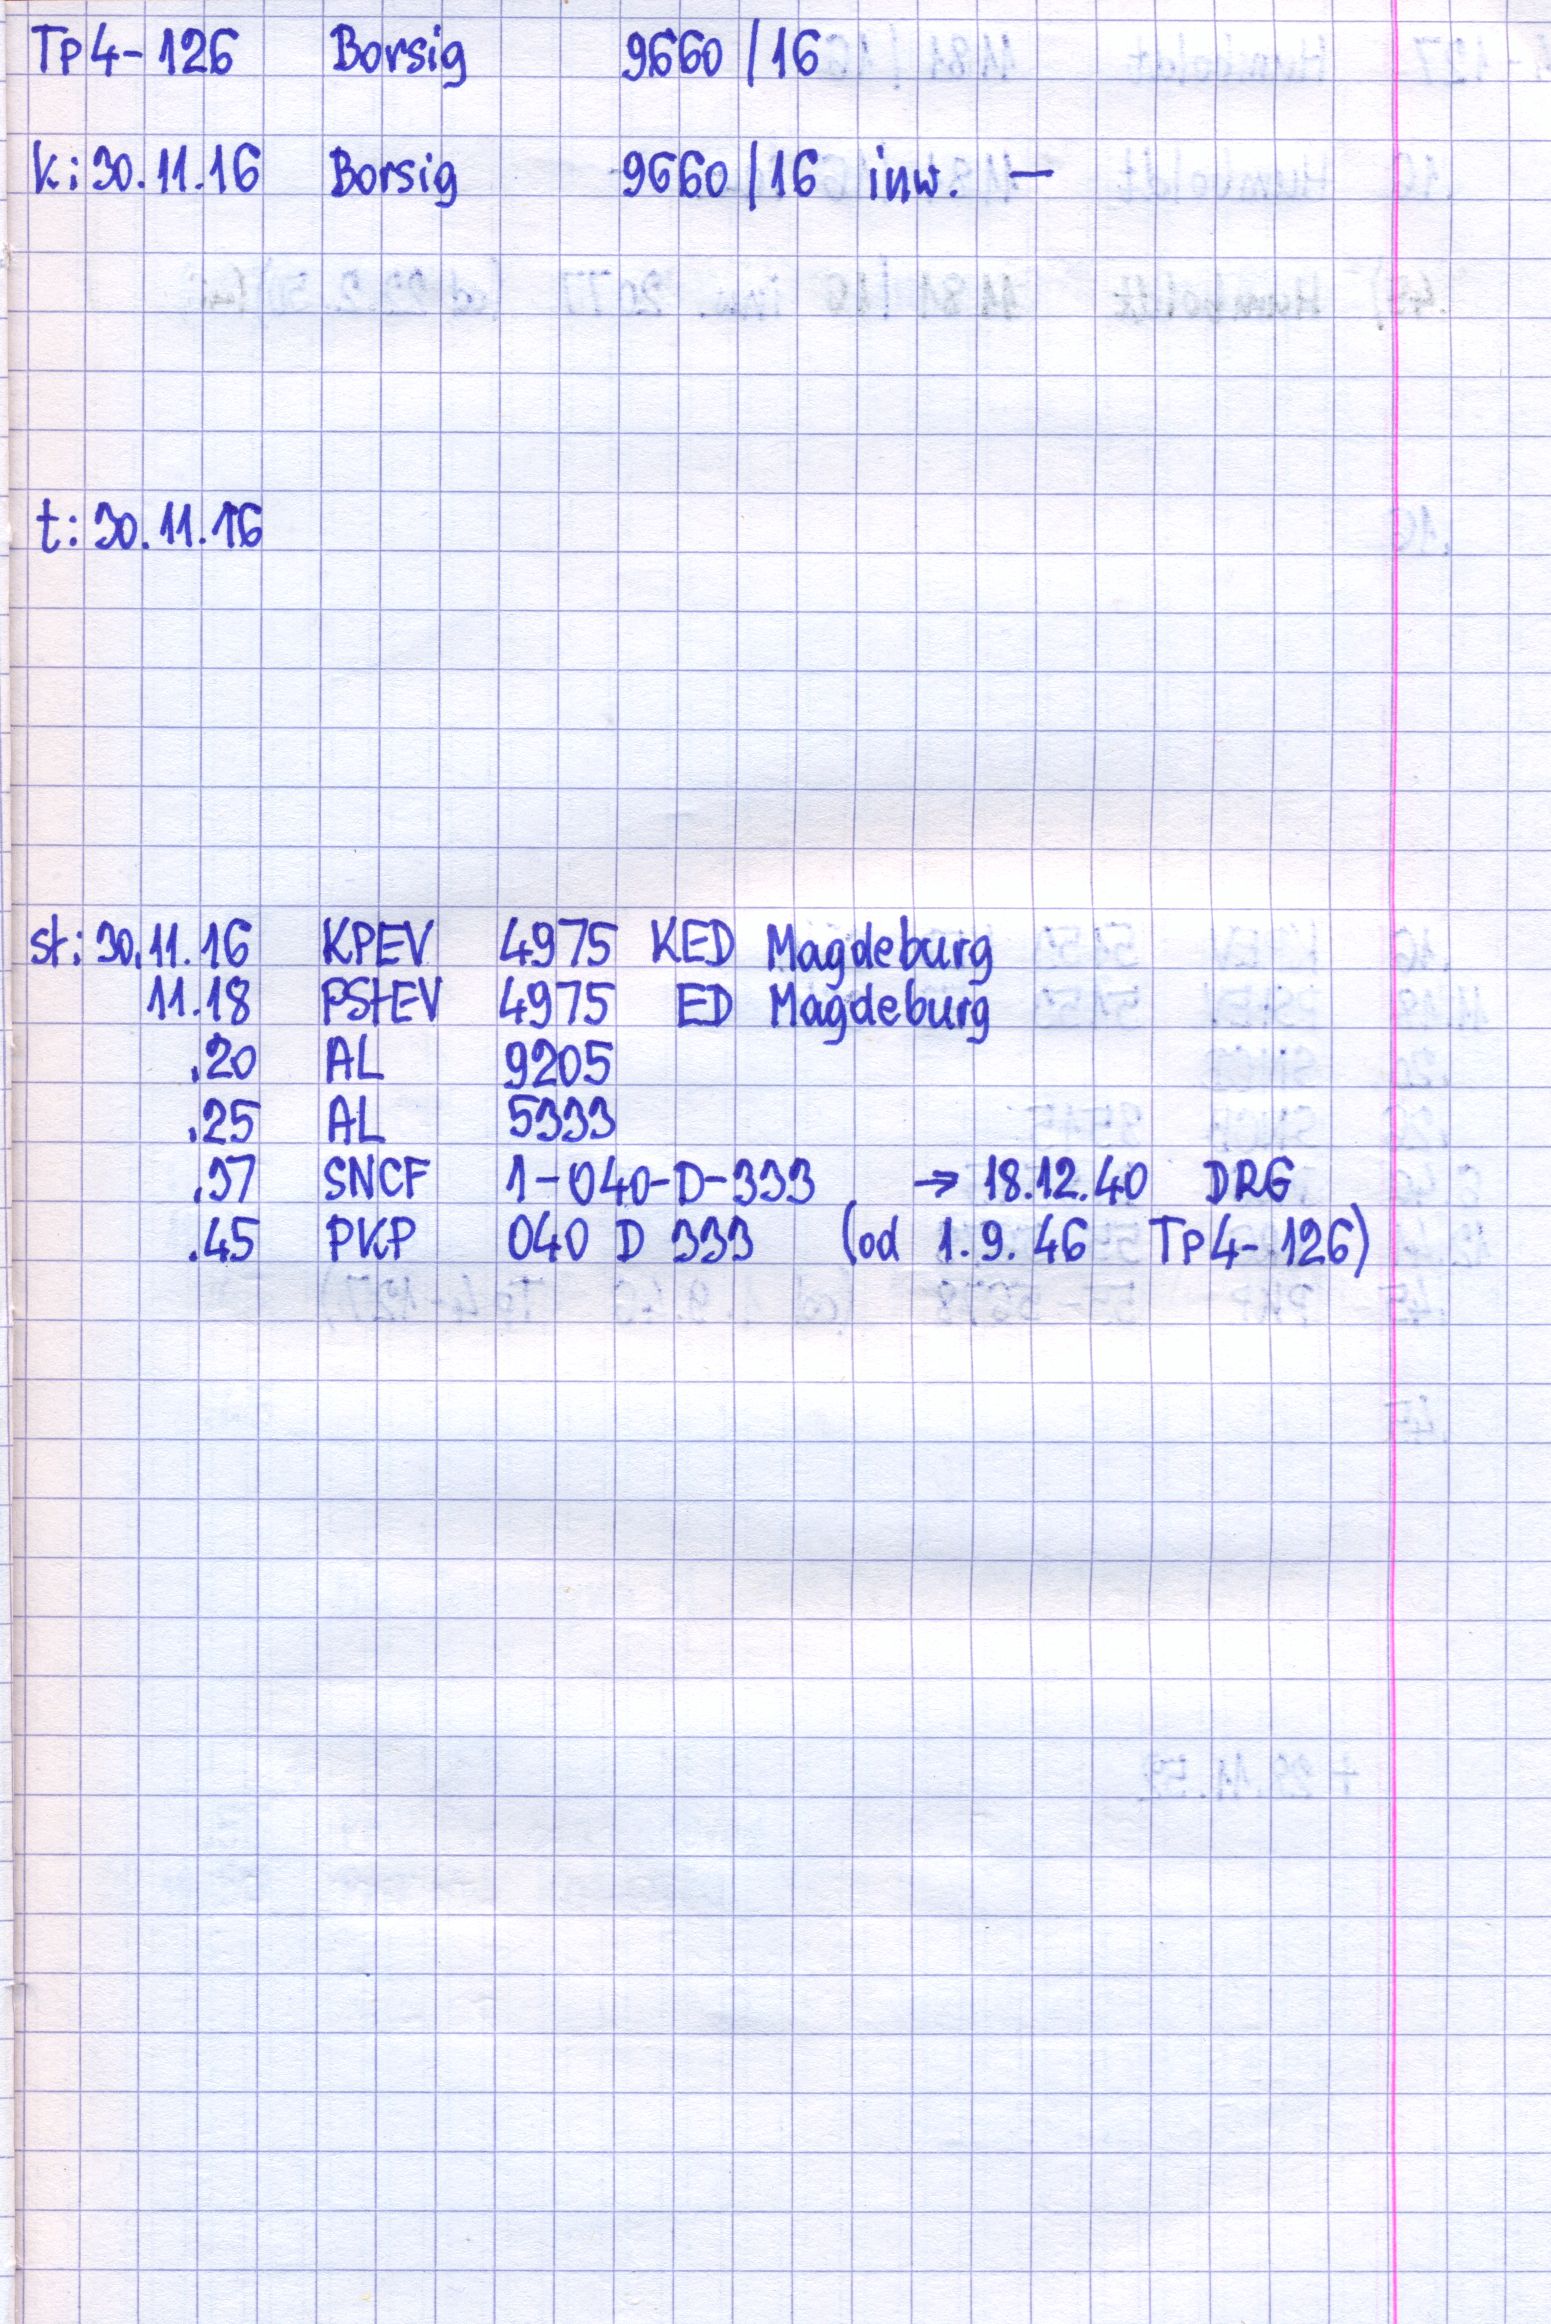 Tp4-126 Borsig 9660/16
k: 30.11.16 Borsig 9660/16 inw. —
t: 30.11.16
st: 30.11.16 KPEV 4975 KED Magdeburg
11.18 PStEV 4975 ED Magdeburg
.20 AL 9205
.25 AL 5333
.37 SNCF 1-040-D-333 → 18.12.40 DRG
.45 PKP 040 D 333 (od 1.9.46 Tp4-126)